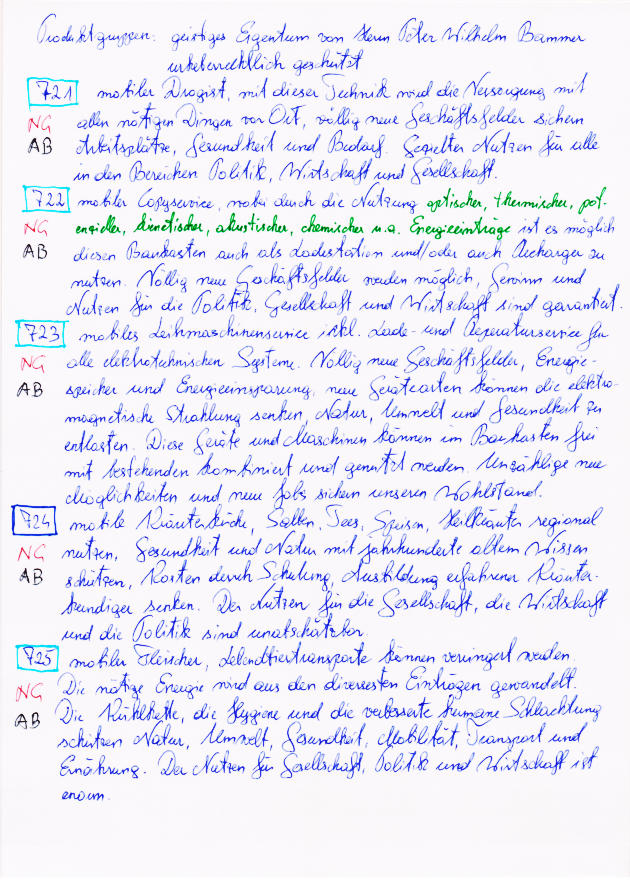 Produktgruppen: geistiges Eigentum von Herrn Peter Wilhelm Bammer
urheberrechtlich geschützt
721 mobiler Drogist, mit dieser Technik wird die Versorgung mit
NG allen nötigen Dingen vor Ort, völlig neue Geschäftsfelder sichern
AB Arbeitsplätze, Gesundheit und Bedarf. Gezielter Nutzen für alle
in den Bereichen Politik, Wirtschaft und Gesellschaft.
722 mobiler Copyservice, wobei durch die Nutzung optischer, thermischer, pot-
NG enzieller, kinetischer, akustischer, chemischer u.a. Energieeinträge ist es möglich
AB diesen Baukasten auch als Ladestation und/oder auch Recharger zu
nutzen. Völlig neue Geschäftsfelder werden möglich, Gewinn und
Nutzen für die Politik, Gesellschaft und Wirtschaft sind garantiert.
723 mobiles Leihmaschinenservice inkl. Lade- und Reparaturservice für
NG alle elektrotechnischen Systeme. Völlig neue Geschäftsfelder, Energie-
AB speicher und Energieeinsparung, neue Gerätearten können die elektro-
magnetische Strahlung senken, Natur, Umwelt und Gesundheit zu
entlasten. Diese Geräte und Maschinen können im Baukasten frei
mit bestehenden kombiniert und genützt werden. Unzählige neue
Möglichkeiten und neue Jobs sichern unseren Wohlstand.
724 mobile Kräuterküche, Salben, Tees, Speisen, Heilkräuter regional
NG nutzen, Gesundheit und Natur mit jahrhunderte altem Wissen
AB schützen, Kosten durch Schulung, Ausbildung erfahrener Kräuter-
kundiger senken. Der Nutzen für die Gesellschaft, die Wirtschaft
und die Politik sind unabschätzbar.
725 mobiler Fleischer, Lebendtiertransporte können verringert werden.
NG Die nötige Energie wird aus den diversesten Einträgen gewandelt.
AB Die Kühlkette, die Hygiene und die verbesserte humane Schlachtung
schützen Natur, Umwelt, Gesundheit, Mobilität, Transport und
Ernährung. Der Nutzen für Gesellschaft, Politik und Wirtschaft ist
enorm.